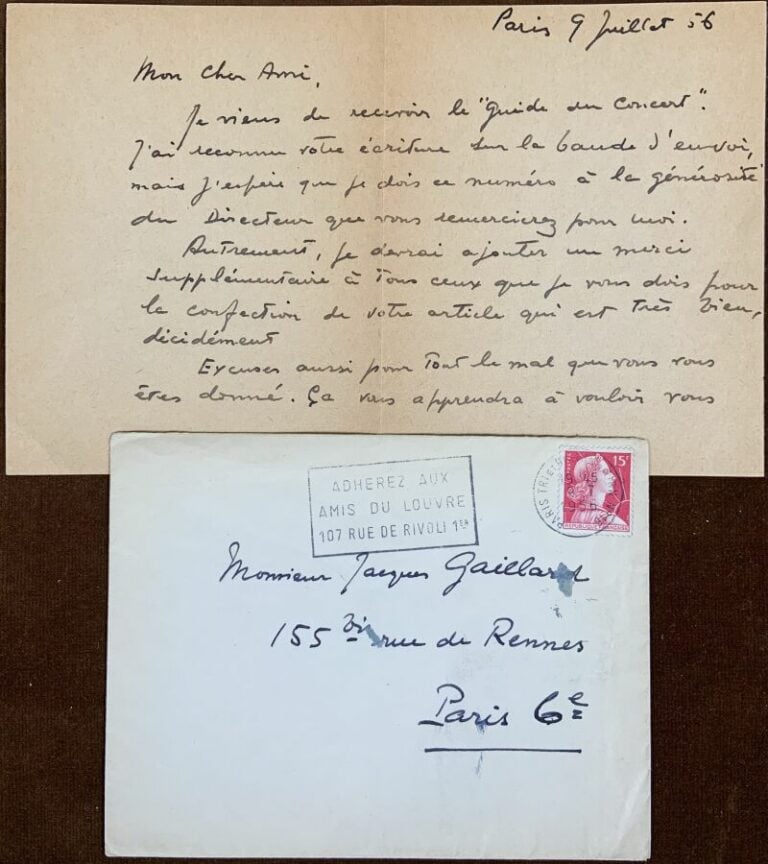 Paris 9 Juillet 56
Mon cher Ami,
Je viens de recevoir le "Guide du Concert".
J'ai reconnu votre écriture sur la bande d'envoi,
mais j'espère que je dois ce numéro à la générosité
du Directeur que vous remercierez pour moi.
Autrement, je devrai ajouter un merci
supplémentaire à tous ceux que je vous dois pour
la confection de votre article qui est très bien,
décidément
Excuses aussi pour tout le mal que vous vous
êtes donné. Ça vous apprendra à vouloir vous
ADHEREZ AUX
AMIS DU LOUVRE
107 RUE DE RIVOLI 1er
15F
PARIS TRI
1956
Monsieur Jacques Gaillard
155 bis rue de Rennes
Paris 6e